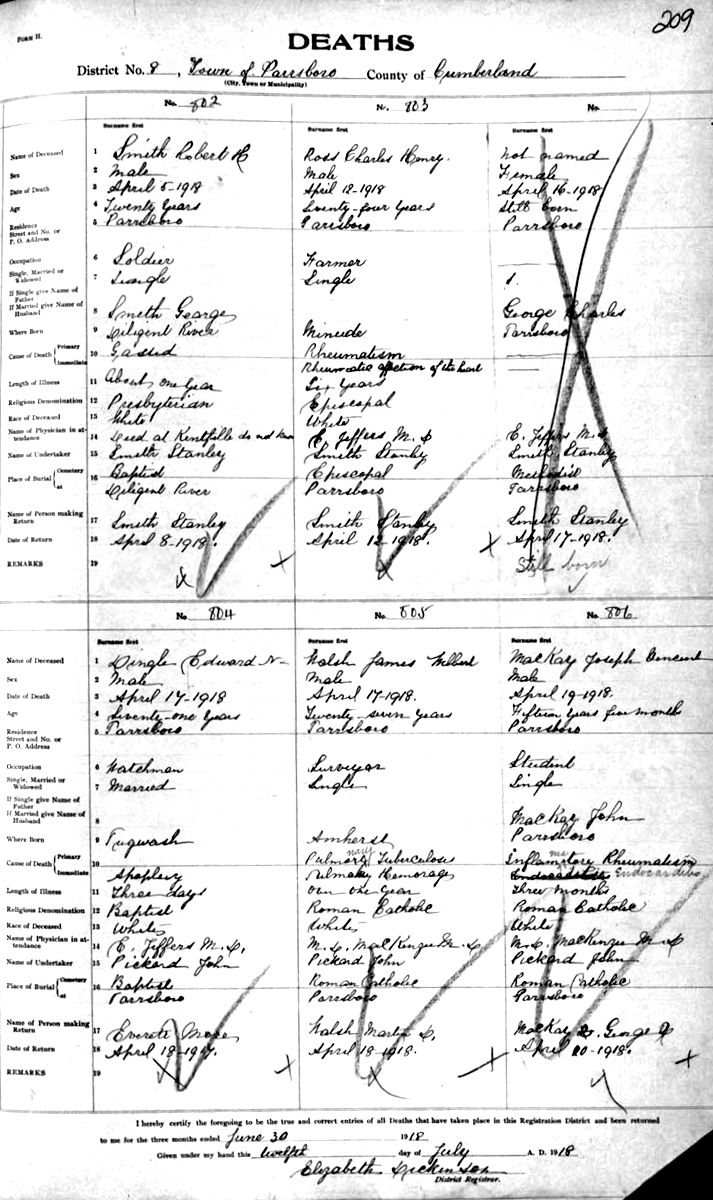 209
FORM H.
DEATHS
District No. 8, Town of Parrsboro County of Cumberland
(City, Town or Municipality)
No. 802 No. 803 No.
Surname first Surname first Surname first
Name of Deceased 1 Smith Robert H Ross Charles Henry. Not named
Sex 2 Male Male Female
Date of Death 3 April 5-1918 April 12-1918 April 16-1918
Age 4 Twenty Years Seventy-four Years Still born
Residence Street and No. or P. O. Address 5 Parrsboro Parrsboro Parrsboro
Occupation 6 Soldier Farmer
Single, Married or Widowed 7 Single Single
If Single give Name of Father
If Married give Name of Husband 8 Smith George George Charles
Where Born 9 Diligent River Minudie Parrsboro
Cause of Death Primary 10 Gassed Rheumatism
Immediate Rheumatic affection of the heart
Length of Illness 11 About one Year Six Years
Religious Denomination 12 Presbyterian Episcopal
Race of Deceased 13 White White
Name of Physician in attendance 14 Died at Kentville do not know E. Jeffers M. D E. Jeffers M. D
Name of Undertaker 15 Smith Stanley Smith Stanley Smith Stanley
Place of Burial Cemetery at 16 Baptist Episcopal Methodist
Diligent River Parrsboro Parrsboro
Name of Person making Return 17 Smith Stanley Smith Stanley Smith Stanley
Date of Return 18 April 8-1918. April 12-1918. April 17-1918.
REMARKS 19 Still born
No. 804 No. 805 No. 806
Surname first Surname first Surname first
Name of Deceased 1 Dingle Edward N- Walsh James Wilbert MacKay Joseph Vincent
Sex 2 Male Male Male
Date of Death 3 April 17-1918 April 17-1918. April 19-1918.
Age 4 Seventy-one Years Twenty-seven Years Fifteen Years five months
Residence Street and No. or P. O. Address 5 Parrsboro Parrsboro Parrsboro
Occupation 6 Watchman Surveyor Student
Single, Married or Widowed 7 Married Single Single
If Single give Name of Father
If Married give Name of Husband 8 MacKay John
Where Born 9 Pugwash Amherst Parrsboro
Cause of Death Primary 10 Pulmonary Tuberculosis Inflammatory Rheumatism
Immediate Apoplexy Pulmonary Hemorage Endocarditis
Length of Illness 11 Three days Over one Year Three months
Religious Denomination 12 Baptist Roman Catholic Roman Catholic
Race of Deceased 13 White White White
Name of Physician in attendance 14 E. Jeffers M. D. M. D. MacKenzie M. D M. D. MacKenzie M. D
Name of Undertaker 15 Pickard John Pickard John Pickard John
Place of Burial Cemetery at 16 Baptist Roman Catholic Roman Catholic
Parrsboro Parrsboro Parrsboro
Name of Person making Return 17 Everett Walsh Martin MacKay George
Date of Return 18 April 18-1917. April 18-1918. April 20-1918.
REMARKS 19
I hereby certify the foregoing to be the true and correct entries of all Deaths that have taken place in this Registration District and been returned
to me for the three months ended June 30 1918
Given under my hand this twelfth day of July A. D. 1918
Elizabeth Dickinson
District Registrar.